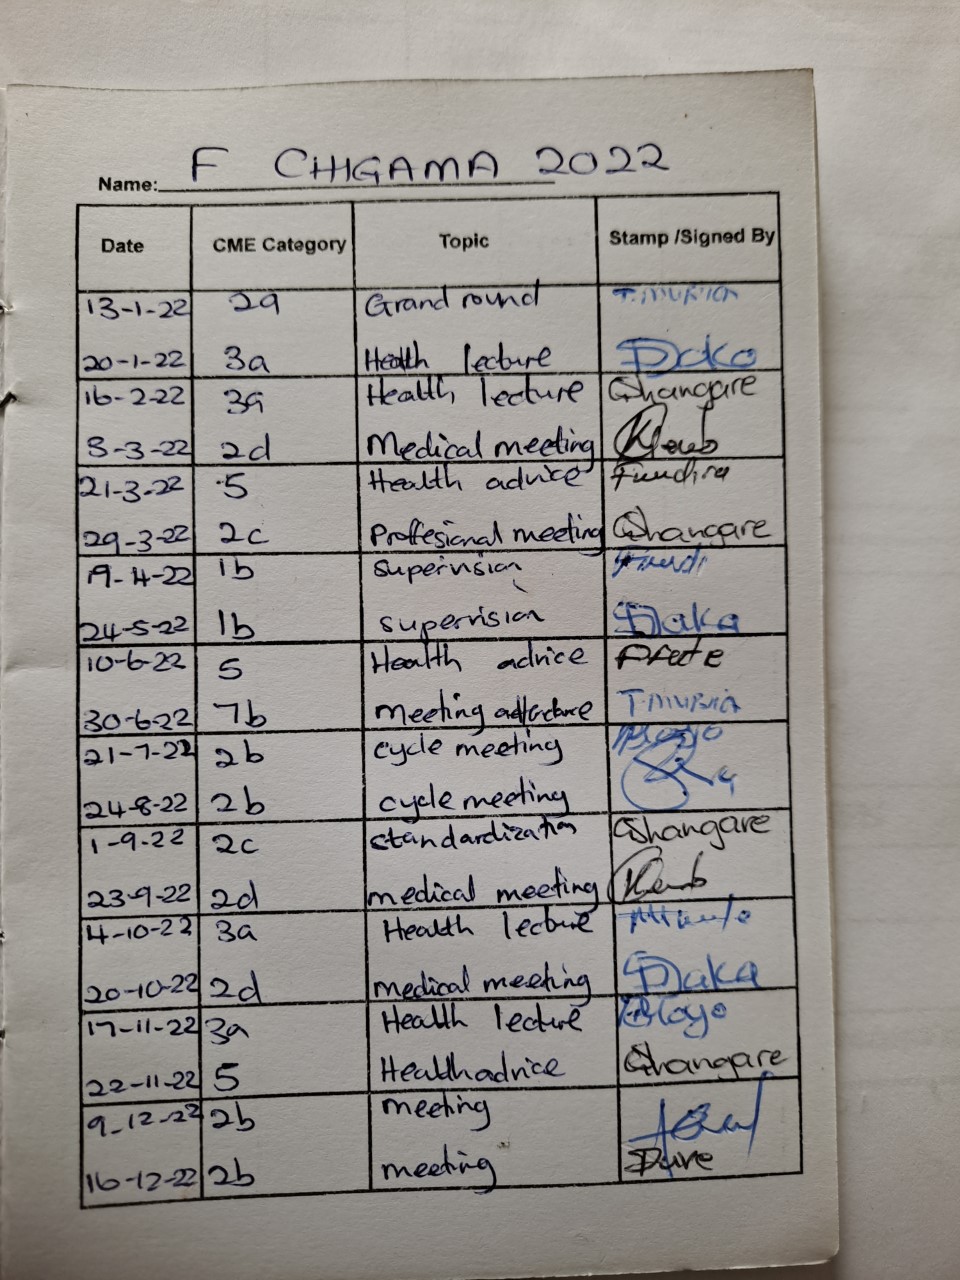 F CHIGAMA 2022
Name:
Date CME Category Topic Stamp /Signed By
13-1-22 2a Grand round
20-1-22 3a Health lecture Daka
16-2-22 3a Health lecture Ghangare
3-3-22 2d Medical meeting
21-3-22 5 Health advice
29-3-22 2c Proffesional meeting Ghangare
19-4-22 1b supervision
24-5-22 1b supervision Daka
10-6-22 5 Health advice
30-6-22 7b meeting
21-7-22 2b cycle meeting
24-8-22 2b cycle meeting
1-9-22 2c standardization Ghangare
23-9-22 2d medical meeting
4-10-22 3a Health lecture
20-10-22 2d medical meeting Daka
17-11-22 3a Health lecture
22-11-22 5 Health advice Ghangare
9-12-22 2b meeting
16-12-22 2b meeting